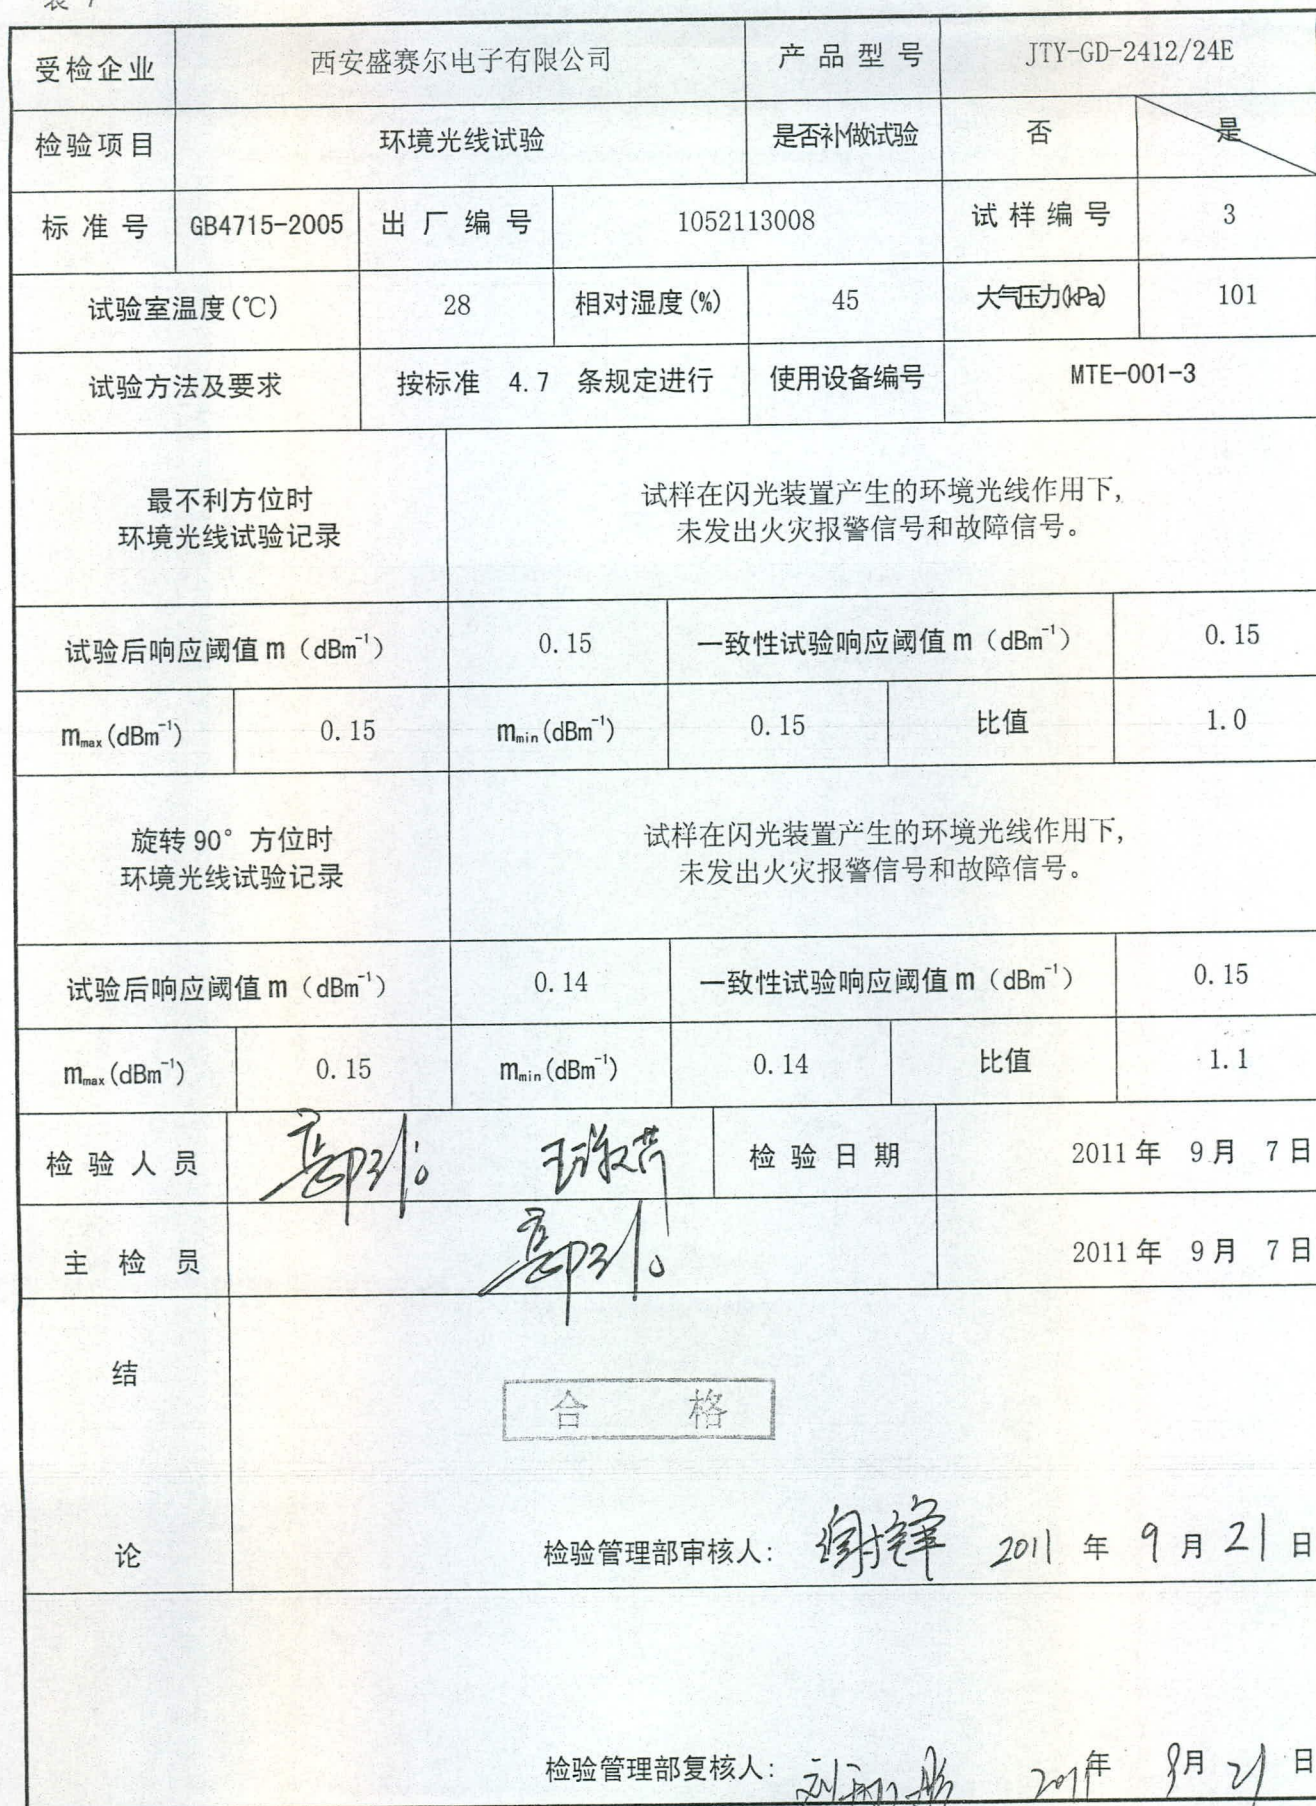 表 7
受检企业 西安盛赛尔电子有限公司 产品型号 JTY-GD-2412/24E
检验项目 环境光线试验 是否补做试验 否 是
标准号 GB4715-2005 出厂编号 1052113008 试样编号 3
试验室温度(℃) 28 相对湿度(%) 45 大气压力(kPa) 101
试验方法及要求 按标准 4.7 条规定进行 使用设备编号 MTE-001-3
最不利方位时
环境光线试验记录
试样在闪光装置产生的环境光线作用下,
未发出火灾报警信号和故障信号。
试验后响应阈值 m（dBm⁻¹） 0.15 一致性试验响应阈值 m（dBm⁻¹） 0.15
mmax(dBm⁻¹) 0.15 mmin(dBm⁻¹) 0.15 比值 1.0
旋转 90° 方位时
环境光线试验记录
试样在闪光装置产生的环境光线作用下,
未发出火灾报警信号和故障信号。
试验后响应阈值 m（dBm⁻¹） 0.14 一致性试验响应阈值 m（dBm⁻¹） 0.15
mmax(dBm⁻¹) 0.15 mmin(dBm⁻¹) 0.14 比值 1.1
检验人员 检验日期 2011年 9月 7日
主检员 2011年 9月 7日
结
合格
论 检验管理部审核人: 2011 年 9 月 21 日
检验管理部复核人: 2011年 9月 21 日